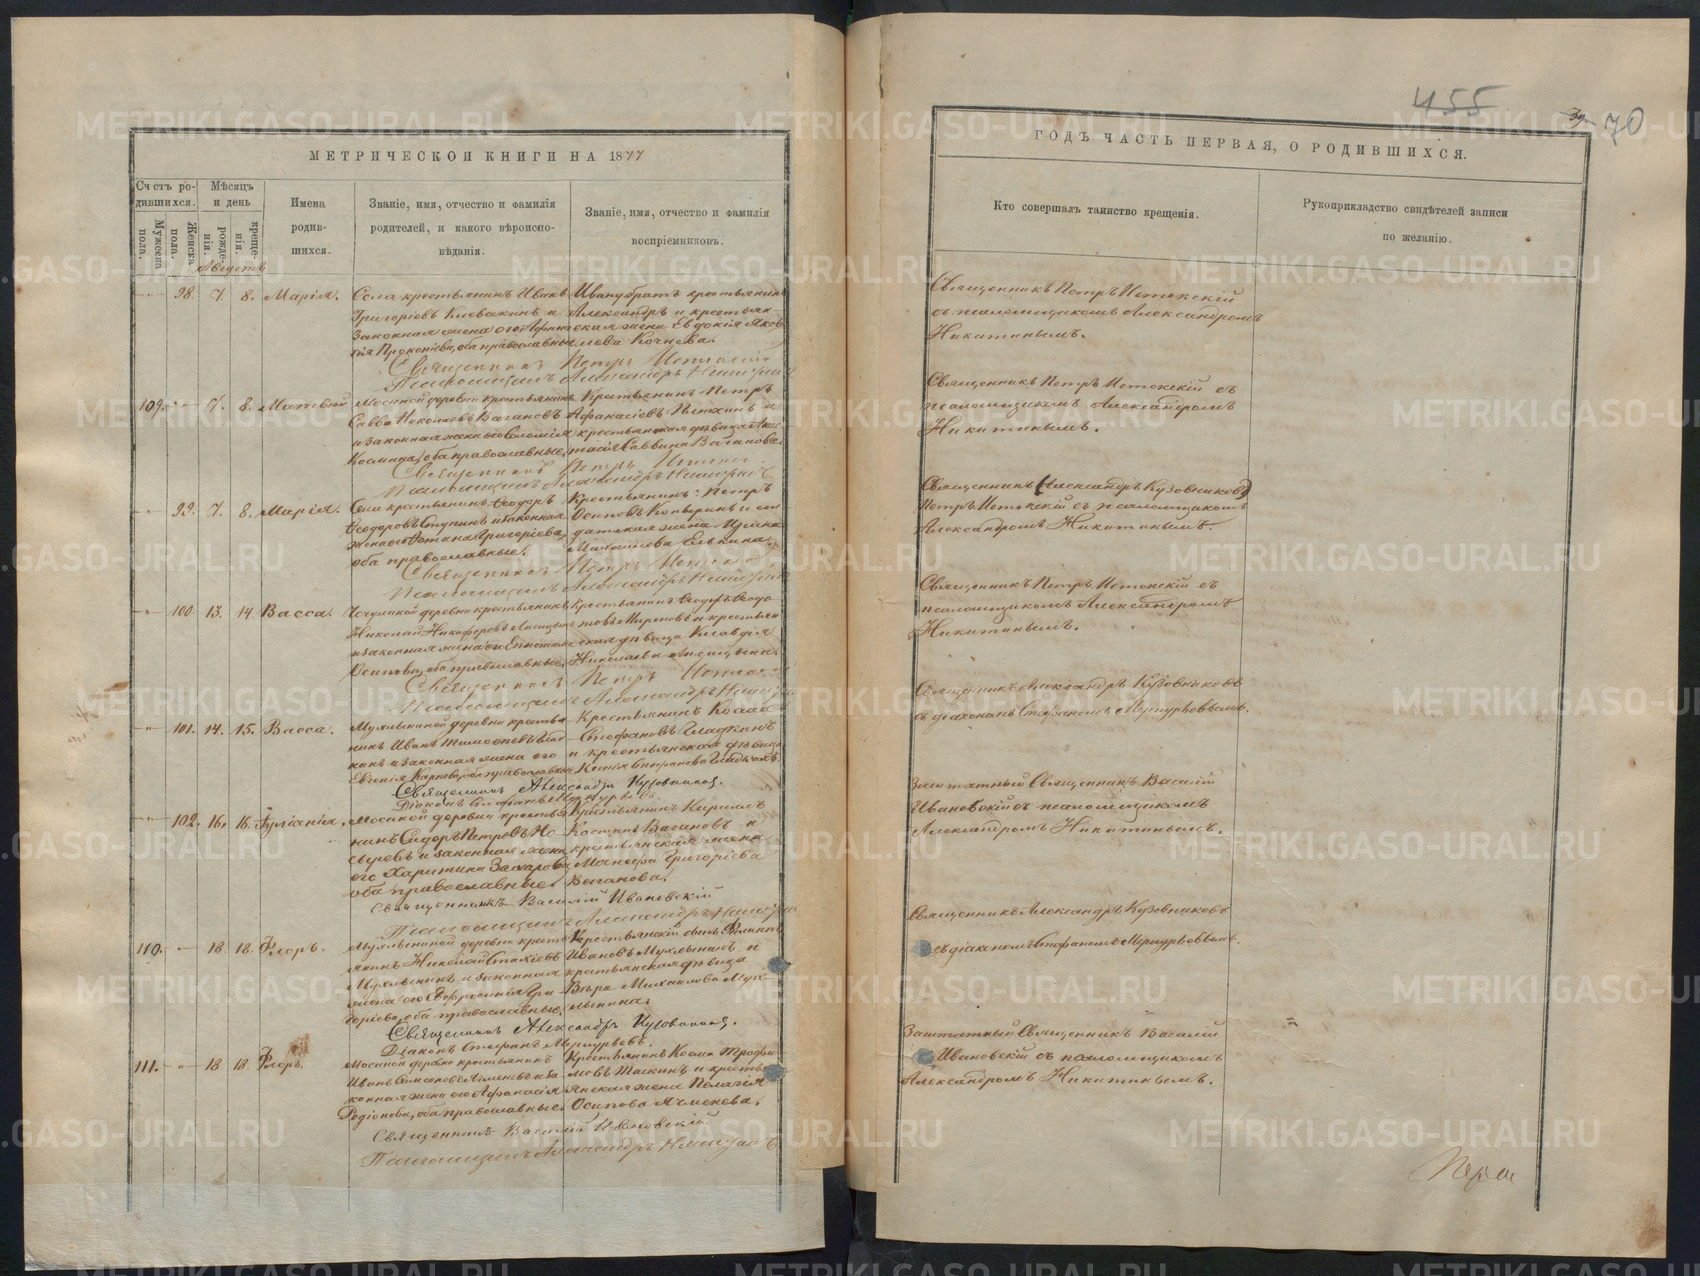 МЕТРИЧЕСКОЙ КНИГИ НА 1877
Счетъ родившихся.
Мужеска пола.
Женска пола.
Мѣсяцъ и день
рожденія.
крещенія.
Имена родившихся.
Званіе, имя, отчество и фамилія родителей, и какого вѣроисповѣданія.
Званіе, имя, отчество и фамилія воспріемниковъ.
Августъ
98. 7. 8. Марія.
Села крестьянинъ Иванъ
Григорьевъ Клевакинъ и
законная жена его
Прокопіева, оба православные
Ивану братъ крестьянинъ
Александръ и крестьян-
ская жена Евдокія Яков-
лева Кочнева.
Священникъ Петръ Истокскій
Псаломщикъ Александръ Никитинъ
109. 7. 8. Матвѣй
Мосиной деревни крестьянинъ
Савва Вагановъ
и законная жена его Соломія
Космина, оба православные.
Крестьянинъ Петръ
Афанасіевъ и
крестьянская дѣвица
Саввина Ваганова.
Священникъ Петръ Истокскій
Псаломщикъ Александръ Никитинъ
99. 7. 8. Марія.
Села крестьянинъ Ѳеодоръ
Ѳеодоровъ Ступинъ и законная
жена его Татіана Григоріева,
оба православные.
Крестьянинъ Петръ
Осиповъ Копыринъ и сол-
датская жена
Елькина.
Священникъ Петръ Истокскій
Псаломщикъ Александръ Никитинъ
100. 13. 14. Васса.
деревни крестьянинъ
Николай Никифоровъ Лисицынъ
и законная жена его Екатерина
Осипова, оба православные.
Крестьянинъ Ѳеодоръ
Мироновъ и крестьян-
ская дѣвица Клавдія
Николаева Лисицына.
Священникъ Петръ Истокскій
Псаломщикъ Александръ Никитинъ
101. 14. 15. Васса.
Мухлыниной деревни крестья-
нинъ Иванъ Тимоѳеевъ
и законная жена его
Евгенія Карпова, оба православные
Крестьянинъ Козма
Стефановъ Гладкихъ
и крестьянская дѣвица
Ксенія Стефанова Гладкихъ.
Священникъ Александръ Кузовниковъ.
Діаконъ Стефанъ Меркурьевъ.
102. 16. 16. Іуліанія.
Мосиной деревни крестья-
нинъ Сидоръ Петровъ Но-
сыревъ и законная жена
его Харитина Захарова,
оба православные.
Крестьянинъ Кириллъ
Костинъ Вагановъ и
крестьянская жена
Манефа Григоріева
Ваганова.
Священникъ Василій Ивановскій
Псаломщикъ Александръ Никитинъ
110. 18. 18. Флоръ.
Мухлыниной деревни кресть-
янинъ Николай Стахіевъ
Мухлынинъ и законная
жена его Евфросинія Гри-
горіева, оба православные.
Крестьянскій сынъ Филиппъ
Ивановъ Мухлынинъ и
крестьянская дѣвица
Вѣра Михаилова Мух-
лынина.
Священникъ Александръ Кузовниковъ.
Діаконъ Стефанъ Меркурьевъ.
111. 18. 18. Флоръ.
Мосиной деревни крестьянинъ
Иванъ Симеоновъ Ячменевъ и за-
конная жена его Афанасія
Родіонова, оба православные.
Крестьянинъ Козма Трофи-
мовъ Таскинъ и кресть-
янская жена Пелагія
Осипова Ячменева.
Священникъ Василій Ивановскій.
Псаломщикъ Александръ Никитинъ
455
70
ГОДЪ ЧАСТЬ ПЕРВАЯ, О РОДИВШИХСЯ.
Кто совершалъ таинство крещенія.
Рукоприкладство свидѣтелей записи
по желанію.
Священникъ Петръ Истокскій
съ псаломщикомъ Александромъ
Никитинымъ.
Священникъ Петръ Истокскій съ
псаломщикомъ Александромъ
Никитинымъ.
Священникъ (Александръ Кузовниковъ)
Петръ Истокскій съ псаломщикомъ
Александромъ Никитинымъ.
Священникъ Петръ Истокскій съ
псаломщикомъ Александромъ
Никитинымъ.
Священникъ Александръ Кузовниковъ
съ діакономъ Стефаномъ Меркурьевымъ.
Заштатный Священникъ Василій
Ивановскій съ псаломщикомъ
Александромъ Никитинымъ.
Священникъ Александръ Кузовниковъ
съ діакономъ Стефаномъ Меркурьевымъ.
Заштатный Священникъ Василій
Ивановскій съ псаломщикомъ
Александромъ Никитинымъ.
METRIKI.GASO-URAL.RU